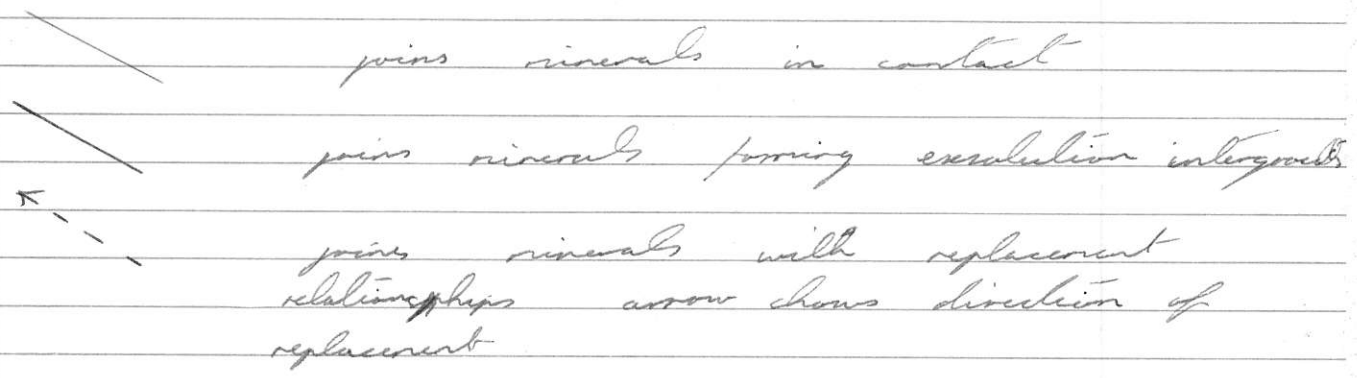 joins minerals in contact
joins minerals forming exsolution intergrowths
joins minerals with replacement
relationships arrow shows direction of
replacement